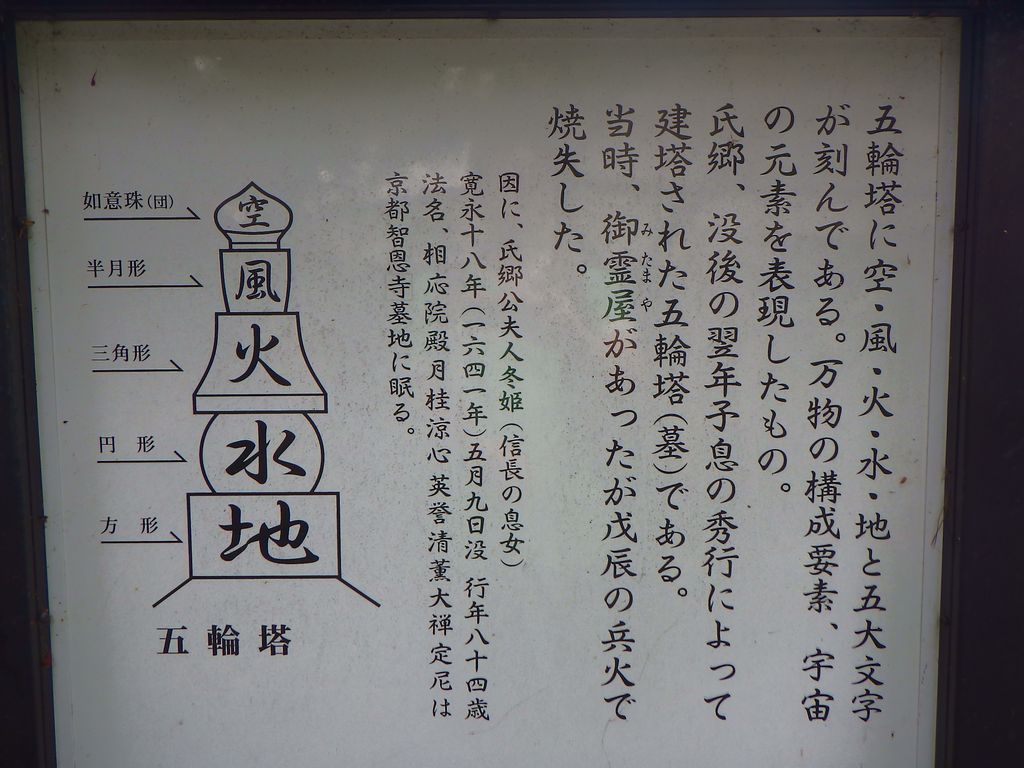 五輪塔に空・風・火・水・地と五大文字
が刻んである。万物の構成要素、宇宙
の元素を表現したもの。
氏郷、没後の翌年子息の秀行によって
建塔された五輪塔(墓)である。
当時、御霊屋があったが戊辰の兵火で
みたまや
焼失した。
因に、氏郷公夫人冬姫(信長の息女)
寛永十八年(一六四一年)五月九日没 行年八十四歳
法名、相応院殿月桂涼心英誉清薫大禅定尼は
京都智恩寺墓地に眠る。
如意珠(団)
空
半月形
風
三角形
火
円形
水
方形
地
五輪塔